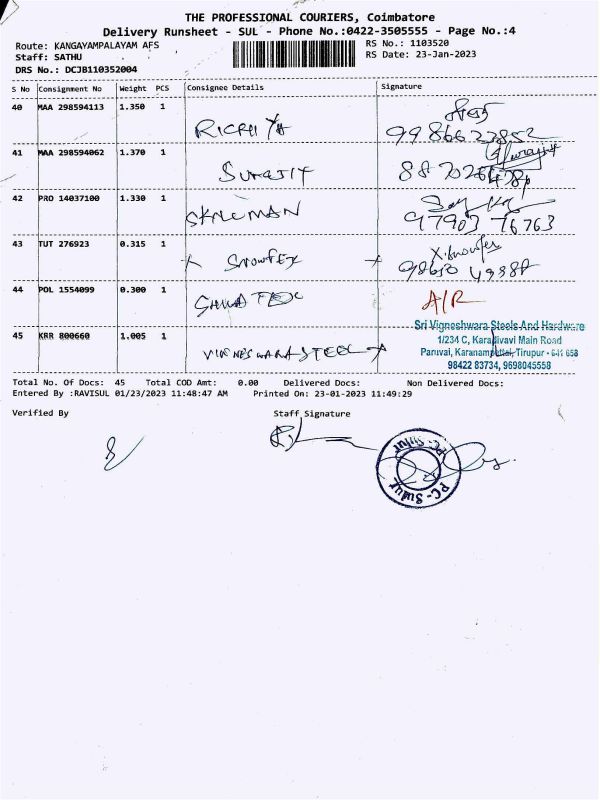 THE PROFESSIONAL COURIERS, Coimbatore
Delivery Runsheet - SUL - Phone No.:0422-3505555 - Page No.:4
Route: KANGAYAMPALAYAM AFS
RS No.: 1103520
Staff: SATHU
RS Date: 23-Jan-2023
DRS No.: DCJB110352004
S No Consignment No Weight PCS Consignee Details Signature
40 MAA 298594113 1.350 1
41 MAA 298594062 1.370 1 SURAJIT
42 PRO 14037100 1.330 1 97903 76763
43 TUT 276923 0.315 1 Snowfex
44 POL 1554099 0.300 1 A/R
45 KRR 800660 1.005 1 VIKNESWARA STEEL
Sri Vigneshwara Steels And Hardware
1/234 C, Karadivavi Main Road
Paruvai, Karanampettai, Tirupur - 641 658
98422 83734, 9698045558
Total No. Of Docs: 45 Total COD Amt: 0.00 Delivered Docs: Non Delivered Docs:
Entered By :RAVISUL 01/23/2023 11:48:47 AM Printed On: 23-01-2023 11:49:29
Verified By Staff Signature
PC-Sulur
PC-Sulur